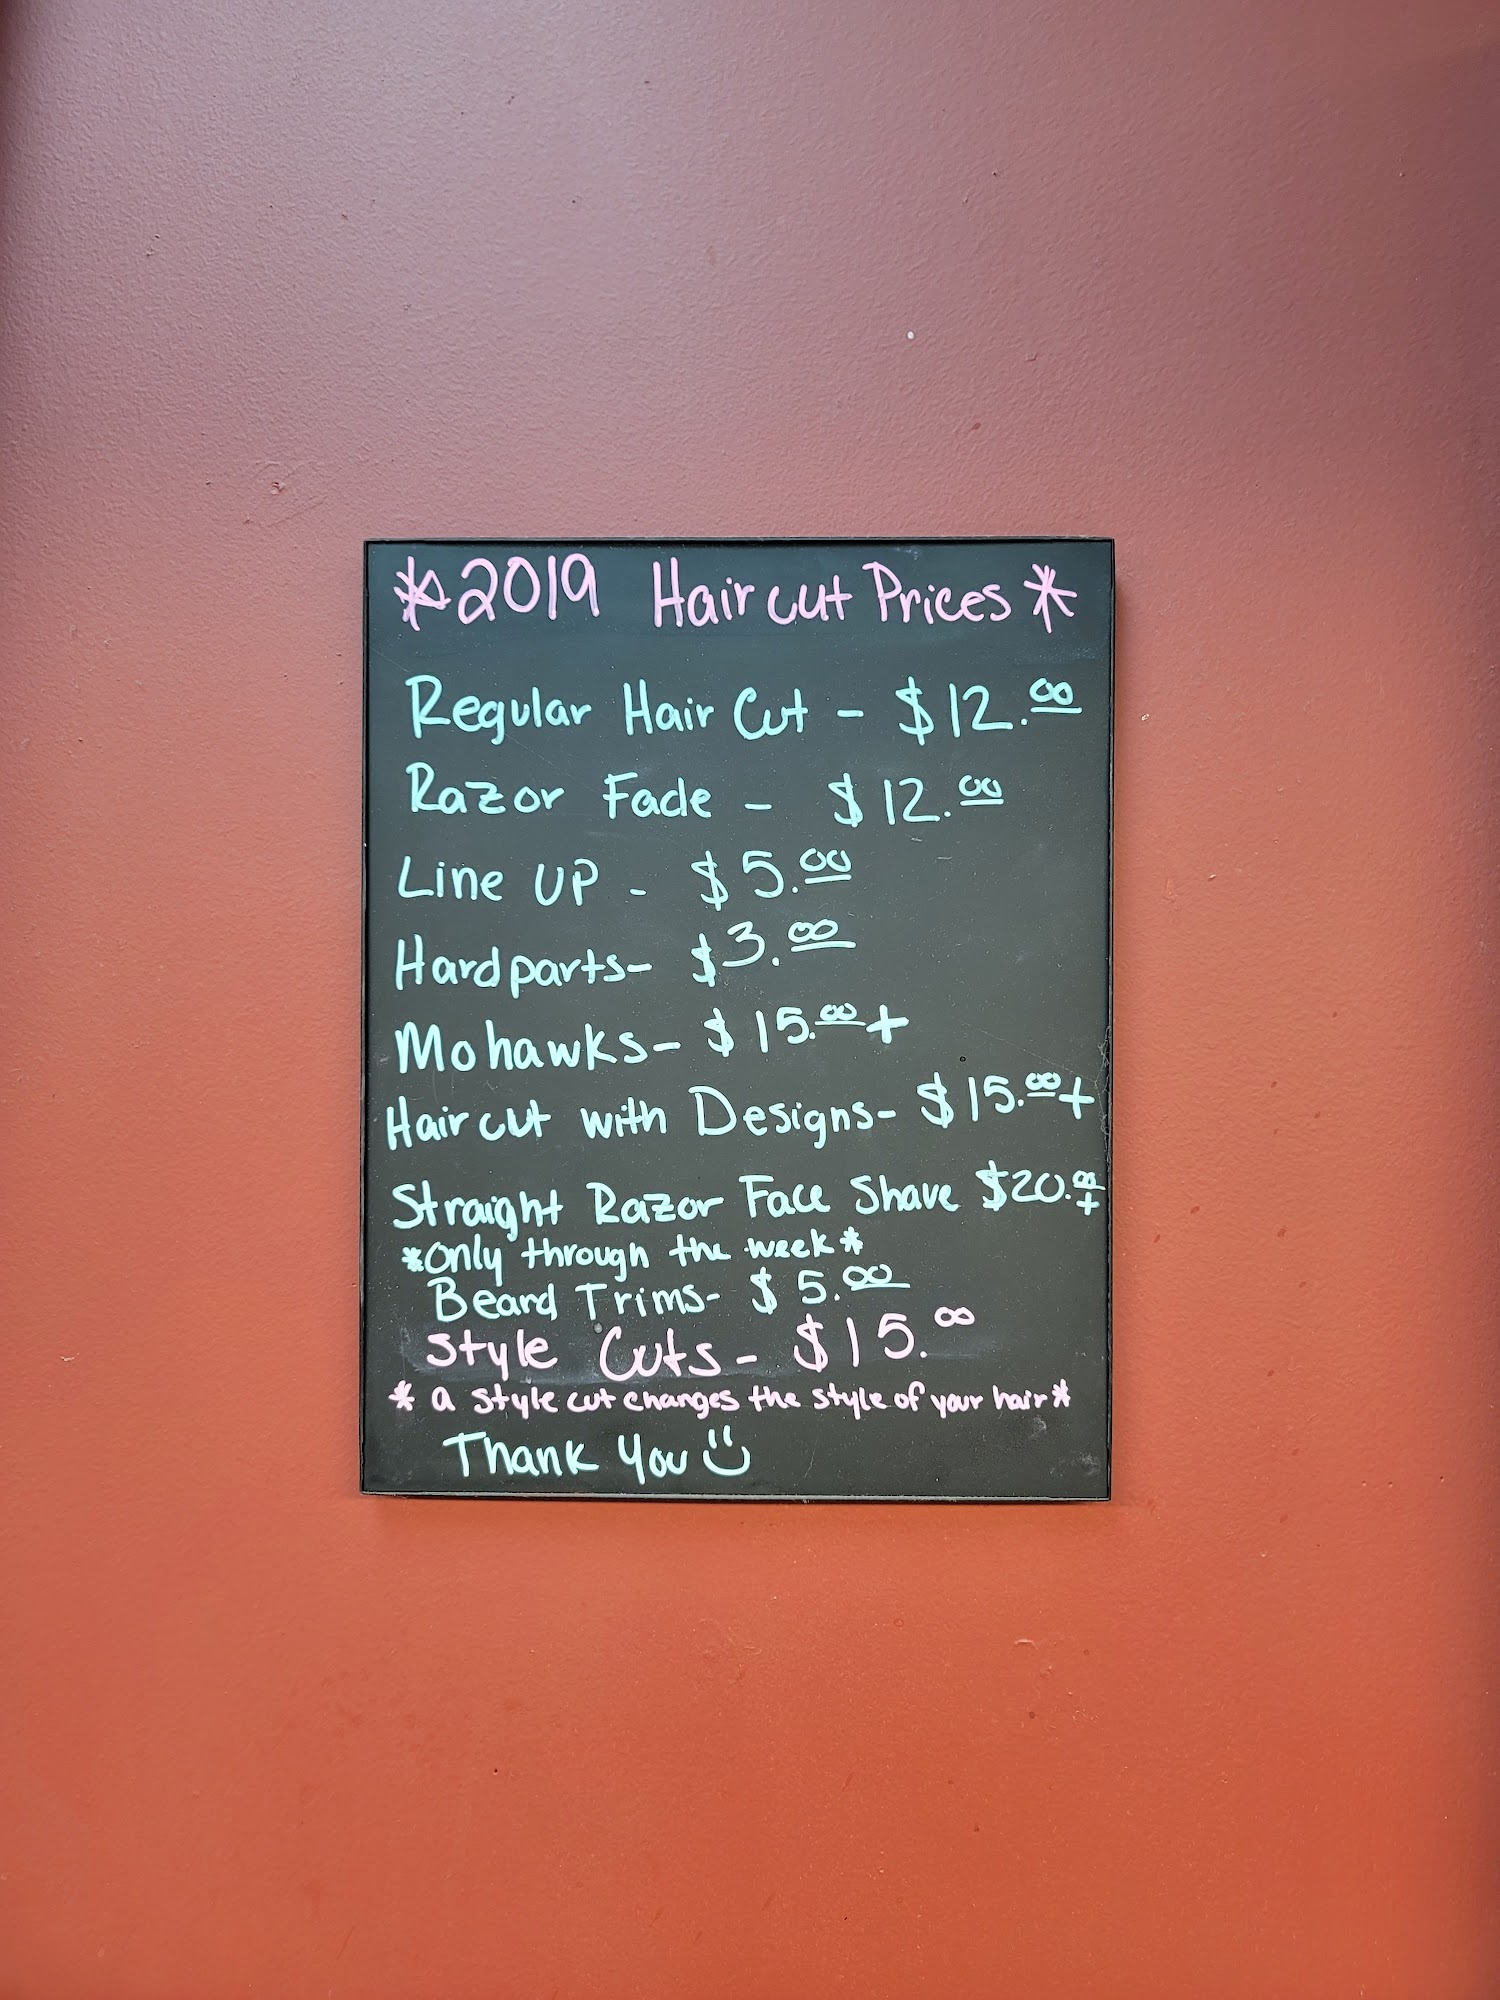 *2019 Hair cut Prices*
Regular Hair Cut - $12.00
Razor Fade - $12.00
Line UP - $5.00
Hardparts- $3.00
Mohawks- $15.00+
Hair cut with Designs- $15.00+
Straight Razor Face Shave $20.00+
*only through the week*
Beard Trims- $5.00
Style Cuts- $15.00
* a style cut changes the style of your hair*
Thank You